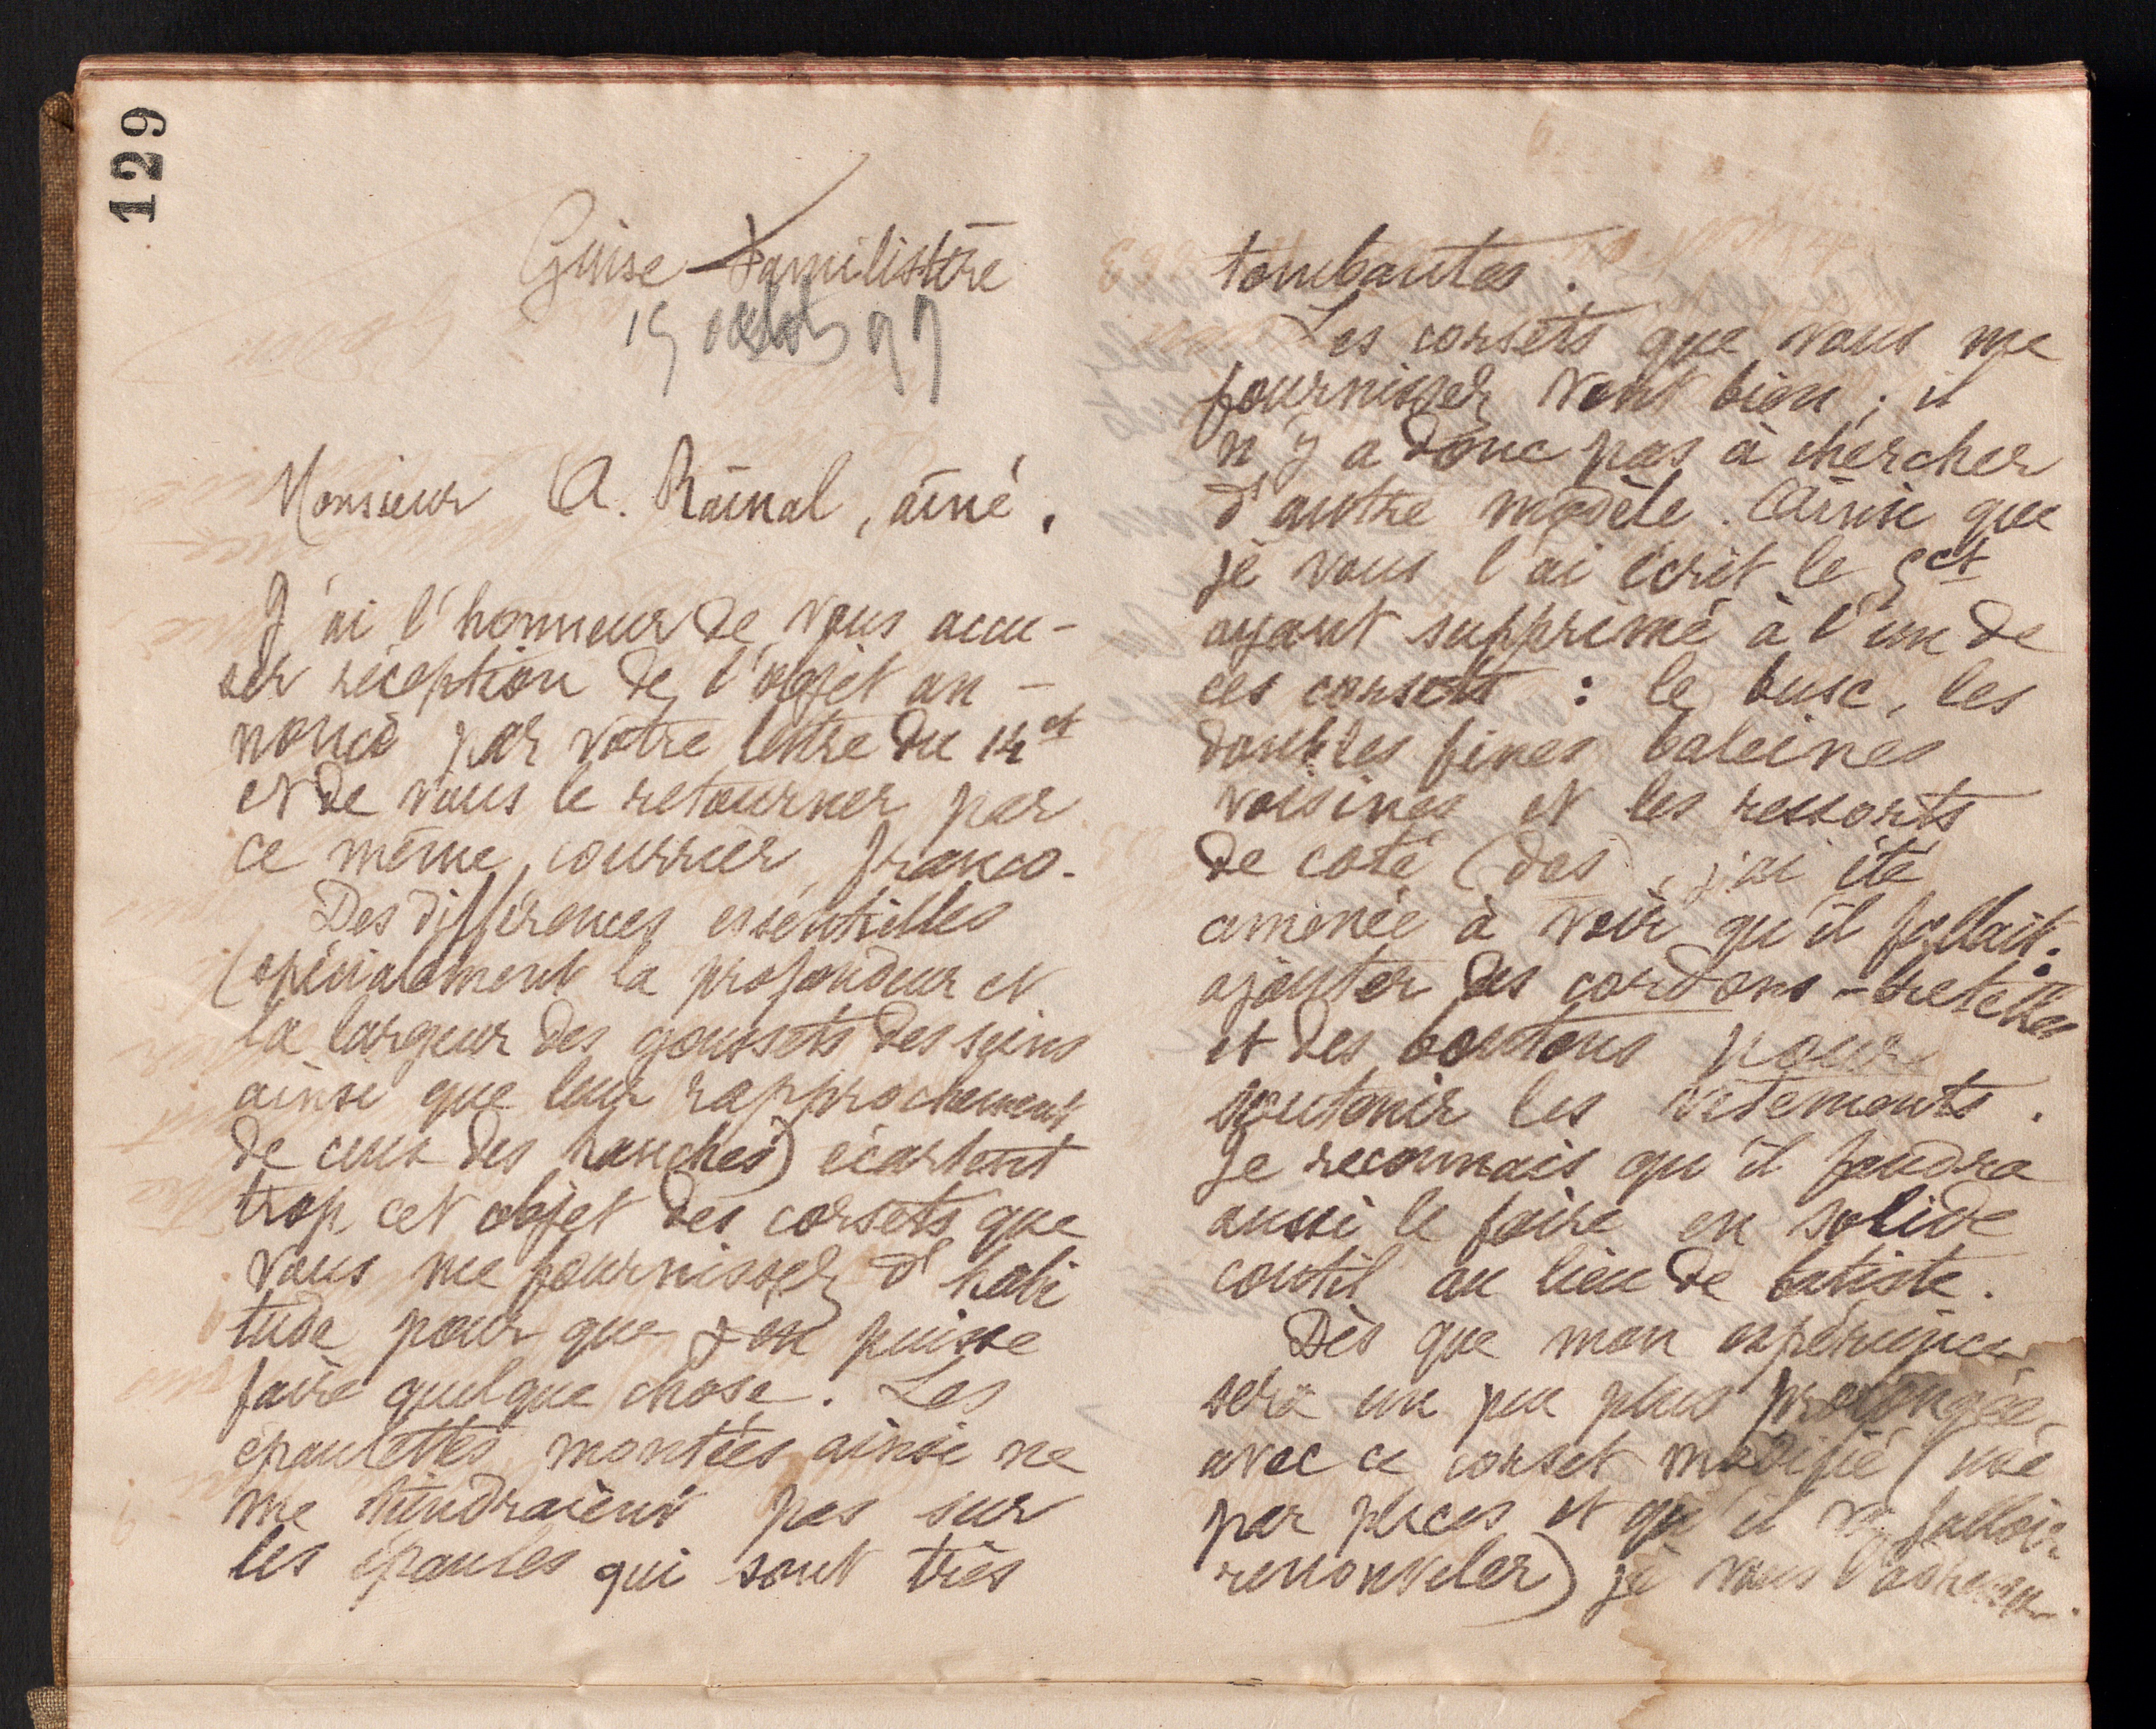 129
Guise Familistère
15 octob 97
Monsieur A. Rainal, aîné.
J'ai l'honneur de vous accu-
ser réception de l'objet an-
noncé par votre lettre du 14 ct
et de vous le retourner par
ce même courrier, franco.
Des différences essentielles
(spécialement la profondeur et
la largeur des goussets des seins
ainsi que leur rapprochement
de ceux des hanches) écartent
trop cet objet des corsets que
vous me fournissez d'habi
tude pour que j'en puisse
faire quelque chose. Les
épaulettes montées ainsi ne
me tiendraient pas sur
les épaules qui sont très
tombantes.
Les corsets que vous me
fournissez vont bien ; il
n'y a donc pas à chercher
d'autre modèle. Ainsi que
je vous l'ai écrit le 5 ct
ayant supprimé à l'un de
ces corsets : le busc, les
doubles fines baleines
voisines et les ressorts
de côté (dos), j'ai été
amenée à voir qu'il fallait
ajouter des cordons-bretelles
et des boutons pour
soutenir les vêtements.
Je reconnais qu'il faudra
aussi le faire en solide
coutil au lieu de batiste.
Dès que mon expérience
sera un peu plus prolongée
avec ce corset modifié (usé
par places et qu'il va falloir
renouveler) je vous l'adresserai.